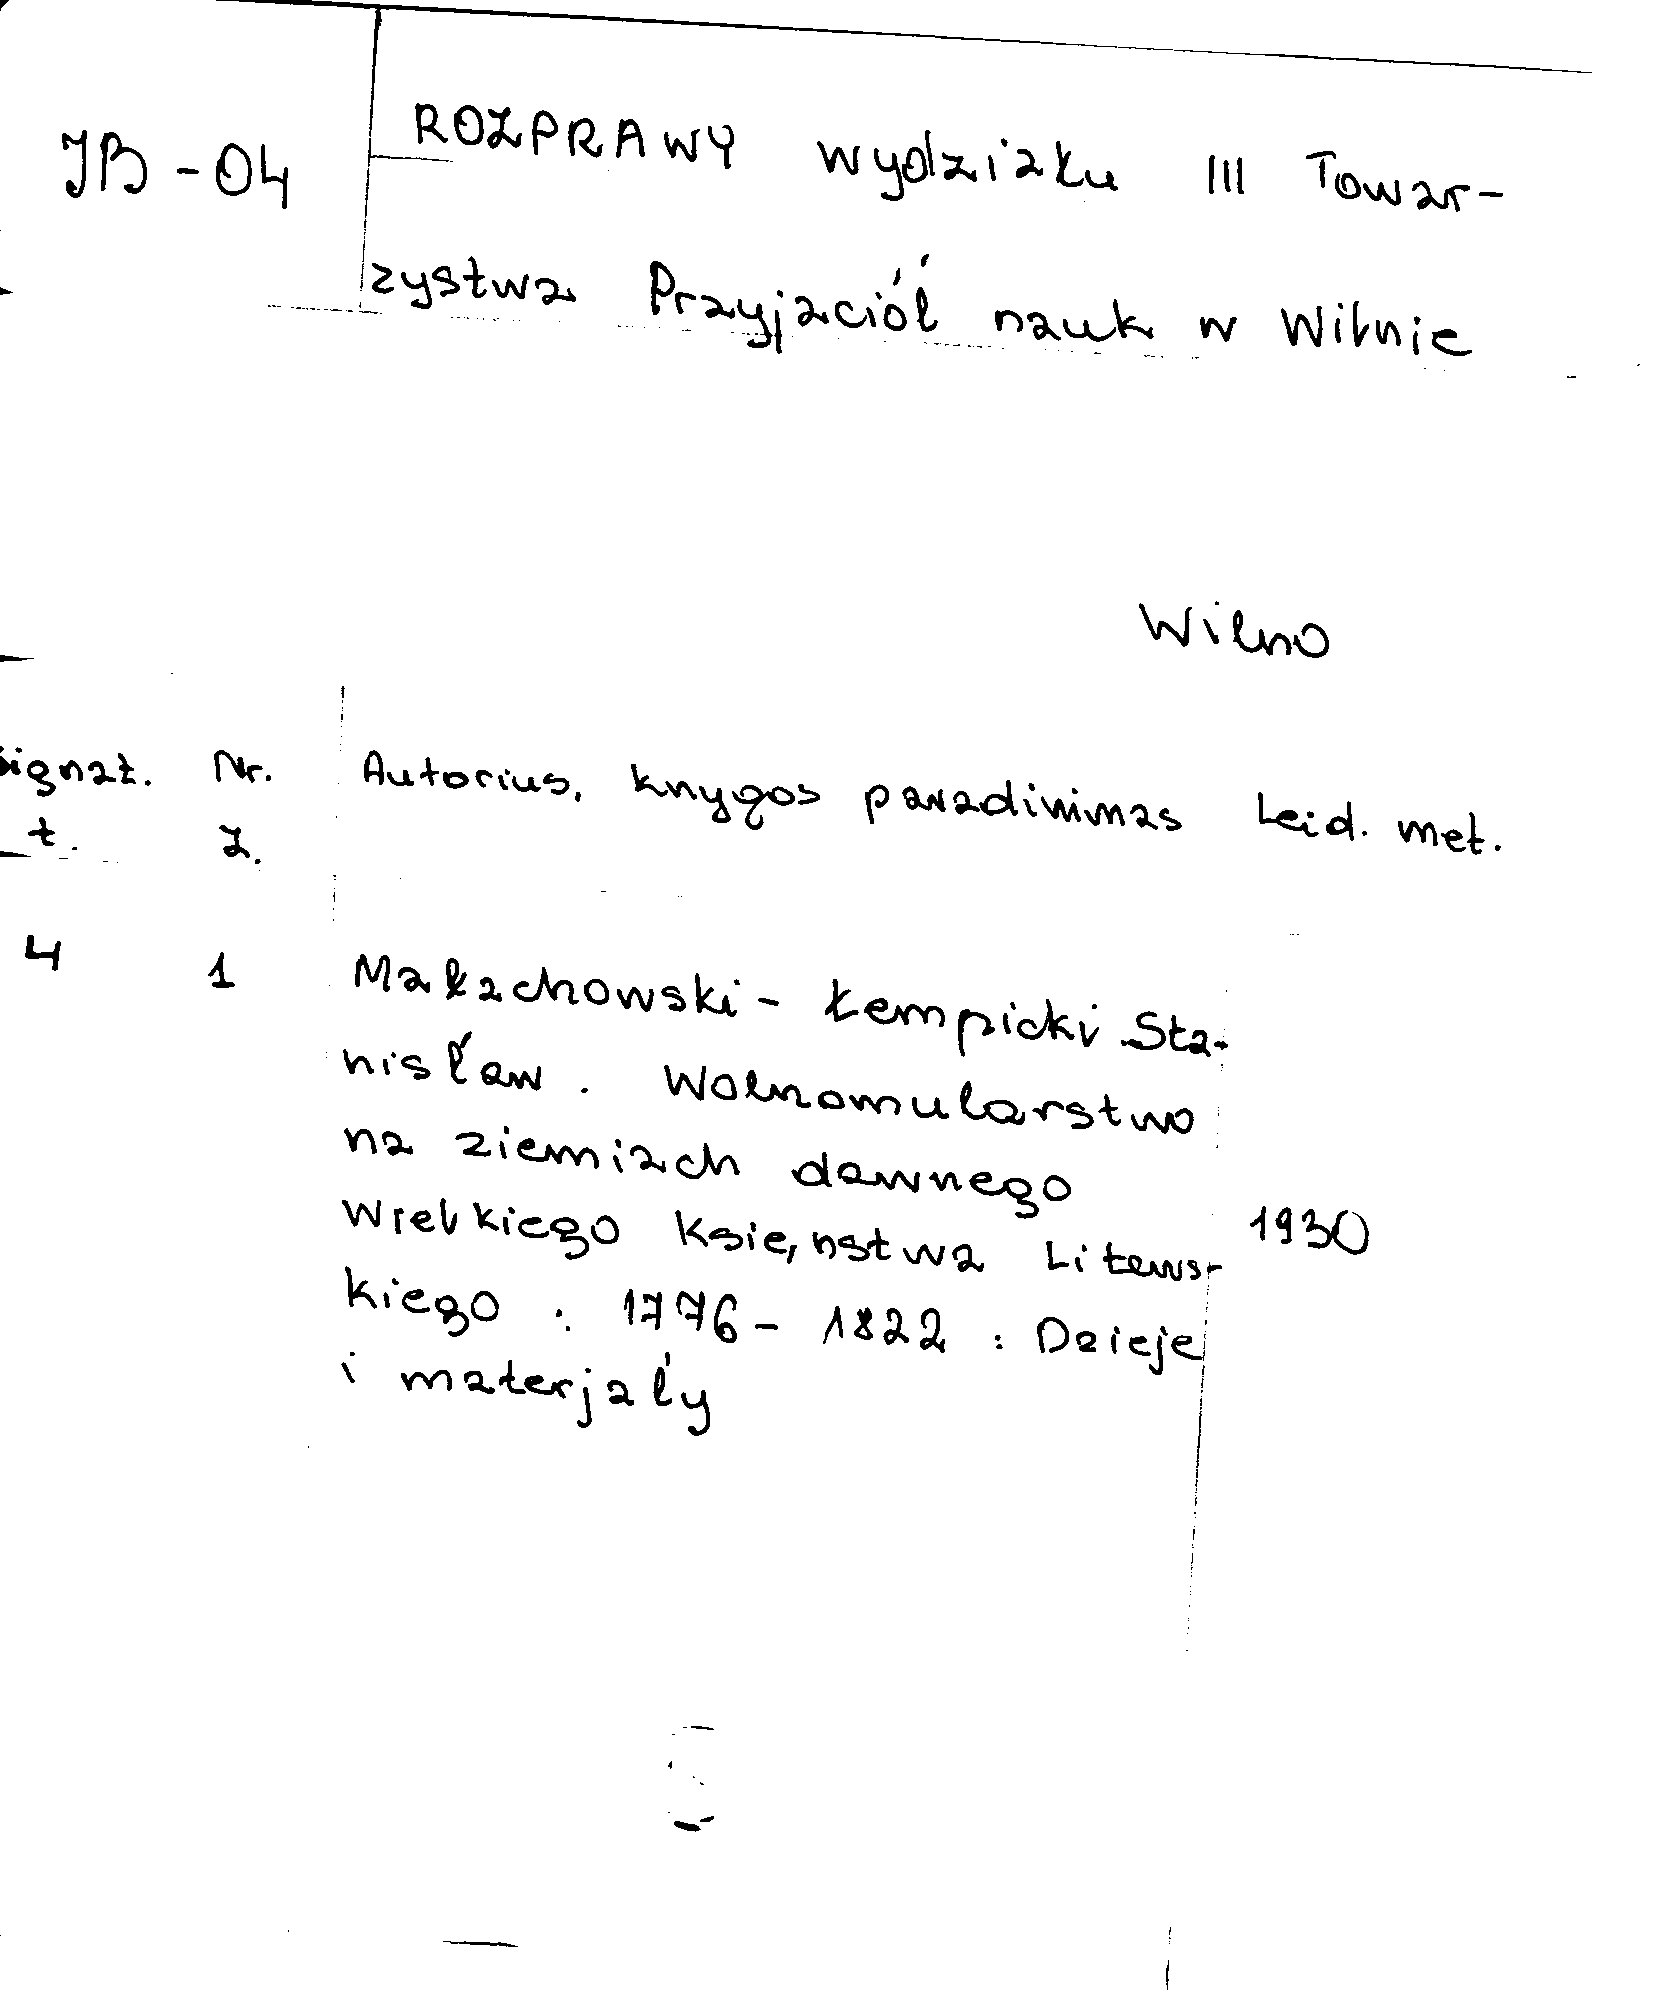 JB-04
ROZPRAWY wydziału III Towar-
zystwa Przyjaciół nauk w Wilnie
Wilno
Signat. Nr. Autorius, knygos pavadinimas Leid. met.
t. Z.
4 1 Małachowski - Łempicki Sta-
nisław. Wolnomularstwo
na ziemiach dawnego
Wielkiego Księnstwa Litews-
kiego : 1776 - 1822 : Dzieje
i materjały
1930